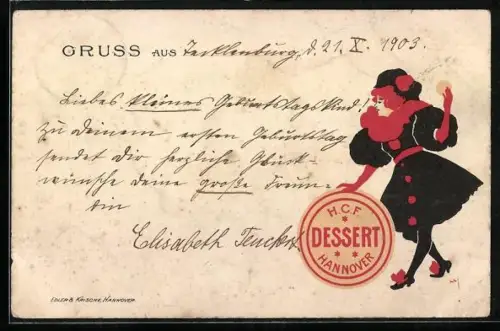 GRUSS AUS Tecklenburg, d. 21. X. 1903.
Liebes kleines Geburtstagskind!
Zu deinem ersten Geburtstag
sendet Dir herzliche Glück-
wünsche deine große Freun-
din
Elisabeth
H.C.F.
DESSERT
HANNOVER
EDLER & KRISCHE, HANNOVER.